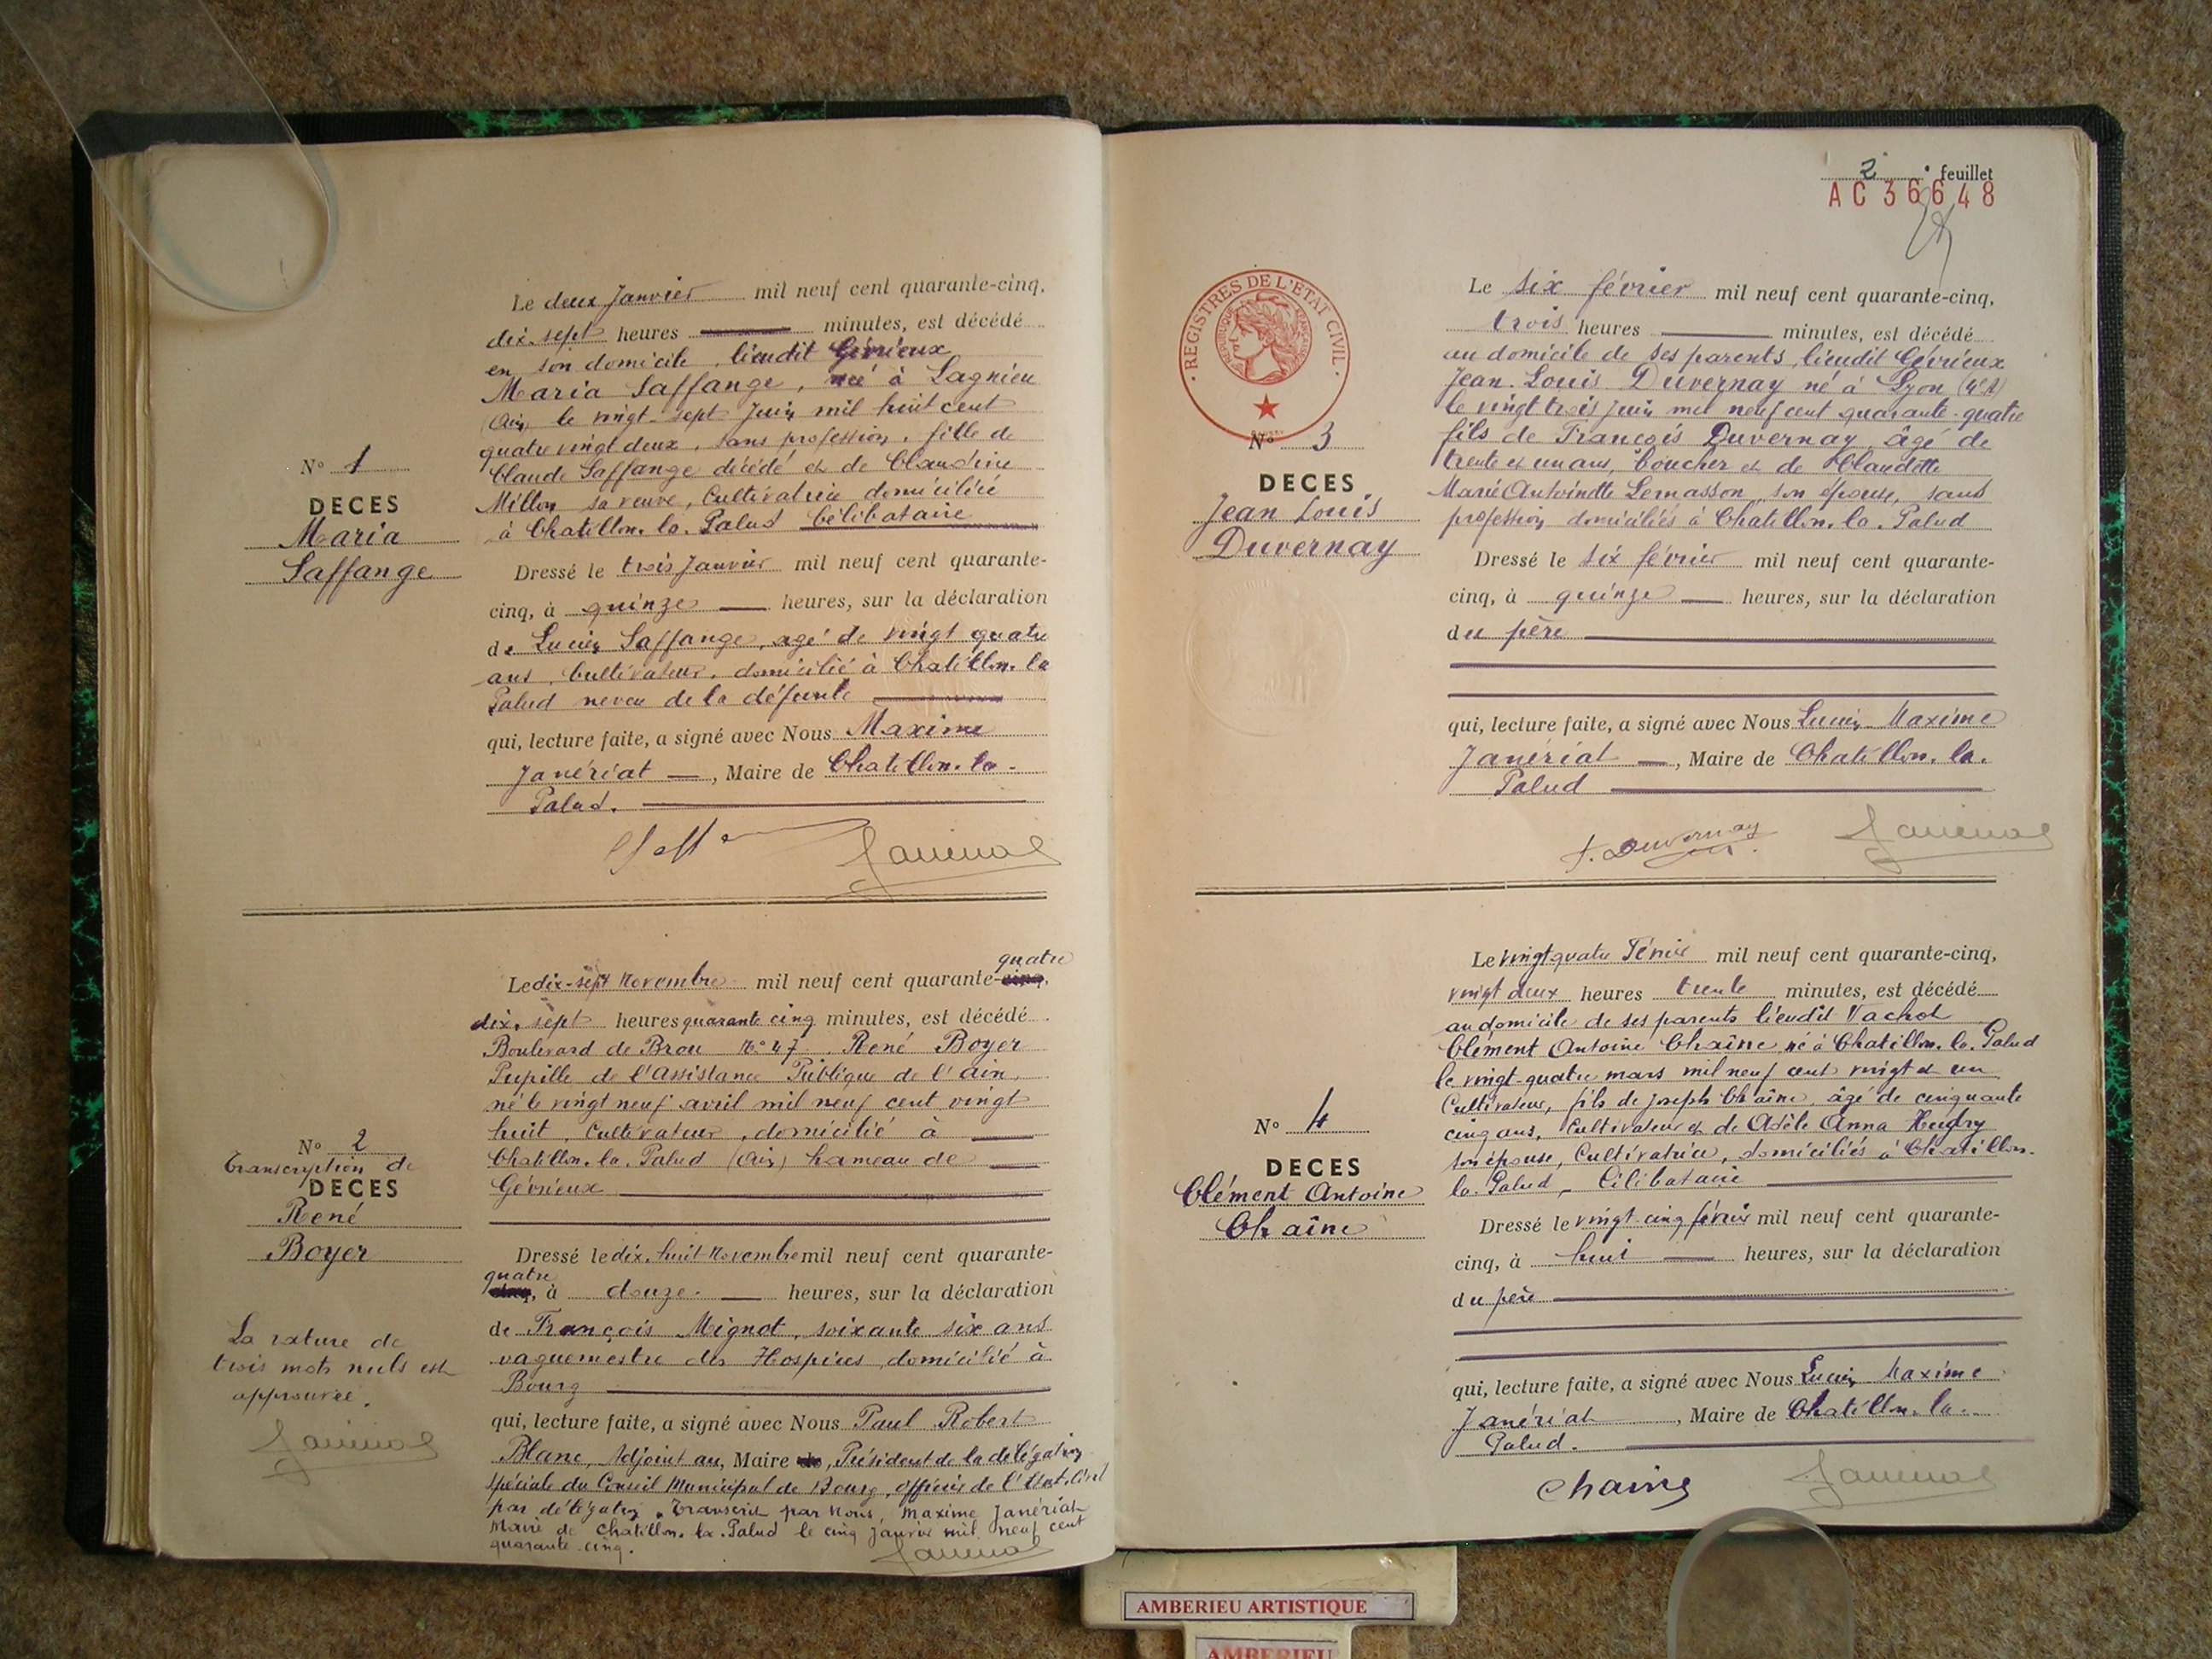 Le deux Janvier mil neuf cent quarante-cinq,
dix-sept heures minutes, est décédé
en son domicile, lieudit Gévrieux
Maria Saffange, née à Lagnieu
(Ain) le vingt-sept Juin mil huit cent
quatre vingt deux, sans profession, fille de
Claude Saffange décédé et de Claudine
Millon sa veuve, Cultivatrice domiciliée
à Chatillon-la-Palud Célibataire
N° 1
DECES
Maria
Saffange
Dressé le trois Janvier mil neuf cent quarante-
cinq, à quinze heures, sur la déclaration
de Lucien Saffange, agé de vingt quatre
ans, Cultivateur, domicilié à Chatillon-la
Palud neveu de la défunte
qui, lecture faite, a signé avec Nous Maxime
Janériat, Maire de Chatillon-la-
Palud.
Le dix-sept Novembre mil neuf cent quarante-cinq, quatre
dix-sept heures quarante cinq minutes, est décédé
Boulevard de Brou N° 47, René Boyer
Pupille de l'Assistance Publique de l'Ain,
né le vingt neuf avril mil neuf cent vingt
huit, Cultivateur, domicilié à
Chatillon-la-Palud (Ain) hameau de
Gévrieux
N° 2
Transcription de
DECES
René
Boyer
Dressé le dix-huit Novembre mil neuf cent quarante-
quatre
cinq, à douze heures, sur la déclaration
de François Mignot, soixante six ans
vaguemestre des Hospices, domicilié à
Bourg
La rature de
trois mots nuls est
approuvée.
Janériat
qui, lecture faite, a signé avec Nous Paul Robert
Blanc, Adjoint au, Maire de, Président de la délégation
spéciale du Conseil Municipal de Bourg, officier de l'Etat-Civil
par délégation. Transcrit par Nous, Maxime Janériat
Maire de Chatillon-la-Palud le cinq Janvier mil neuf cent
quarante-cinq.
Janériat
2 feuillet
AC 36648
REGISTRES DE L'ETAT CIVIL
Le six février mil neuf cent quarante-cinq,
trois heures minutes, est décédé
au domicile de ses parents, lieudit Gévrieux
Jean-Louis Duvernay né à Lyon (4eA)
le vingt trois Juin mil neuf cent quarante-quatre
fils de François Duvernay, âgé de
trente et un ans, boucher et de Claudette
Marie Antoinette Lemasson, son épouse, sans
profession domiciliés à Chatillon-la-Palud
N° 3
DECES
Jean Louis
Duvernay
Dressé le six février mil neuf cent quarante-
cinq, à quinze heures, sur la déclaration
du père
qui, lecture faite, a signé avec Nous Lucien Maxime
Janériat, Maire de Chatillon-la-
Palud
F. Duvernay Janériat
Le vingt quatre Février mil neuf cent quarante-cinq,
vingt deux heures trente minutes, est décédé
au domicile de ses parents lieudit Vachot
Clément Antoine Chaîne, né à Chatillon-la-Palud
le vingt-quatre mars mil neuf cent vingt et un
Cultivateur, fils de Joseph Chaîne, âgé de cinquante
cinq ans, Cultivateur et de Adèle Anna
son épouse, Cultivatrice, domiciliés à Chatillon-
la-Palud, Célibataire
N° 4
DECES
Clément Antoine
Chaîne
Dressé le vingt-cinq février mil neuf cent quarante-
cinq, à huit heures, sur la déclaration
du père
qui, lecture faite, a signé avec Nous Lucien Maxime
Janériat, Maire de Chatillon-la-
Palud.
Chaine Janériat
AMBERIEU ARTISTIQUE
AMBERIEU